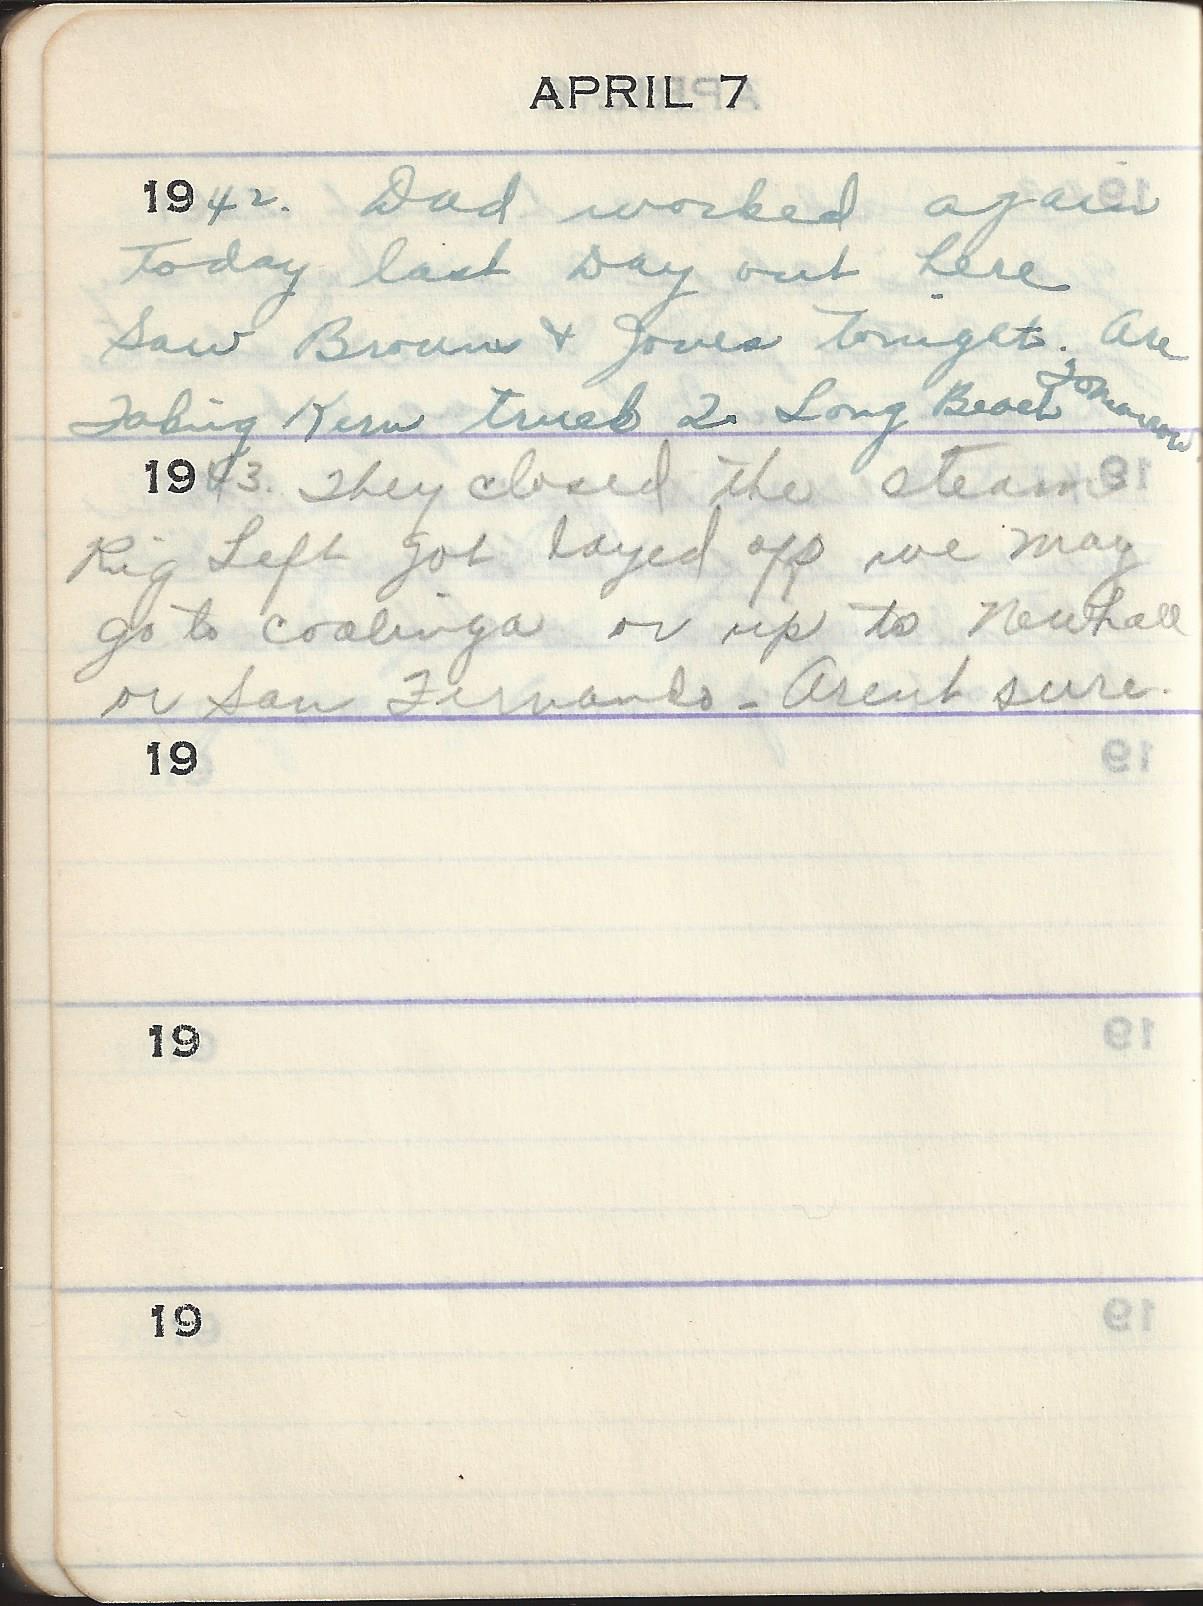 APRIL 7
1942. Dad worked again
Today last Day out here
Saw Brown & Jones Tonight. Are
Taking Kern truck 2 Long Beach Tomorrow.
1943. They closed the steam
Rig Left got layed off we may
go to coalinga or up to Newhall
or San Fernando - Arent sure.
19
19
19